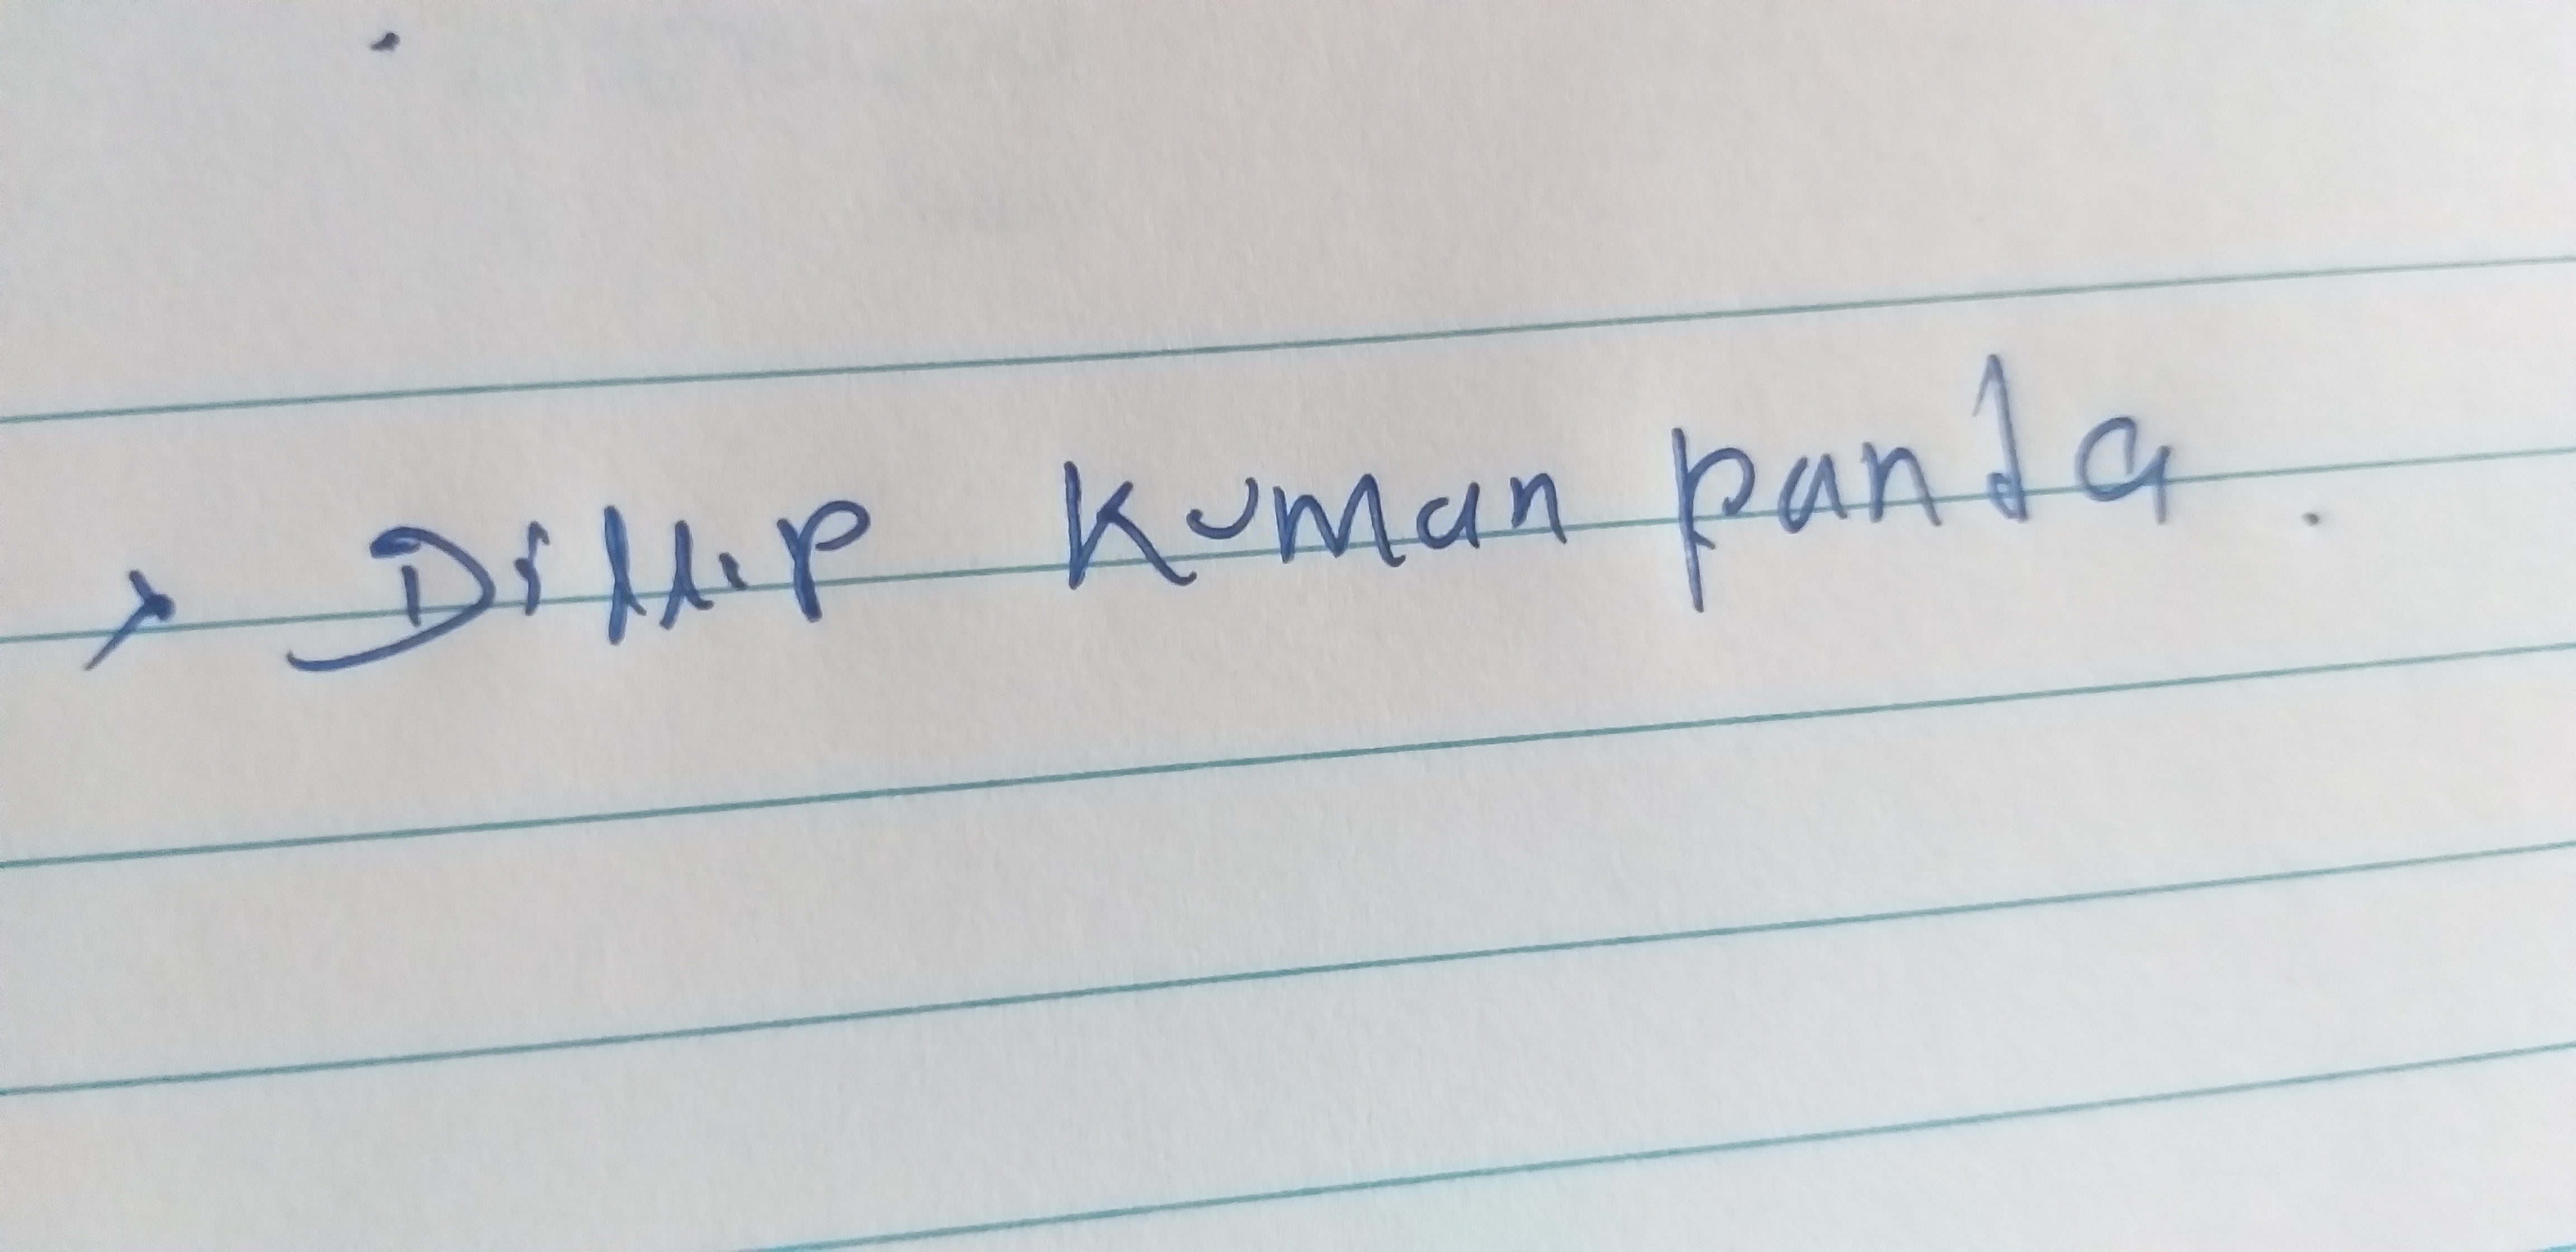 > Dillip Kumar panda.